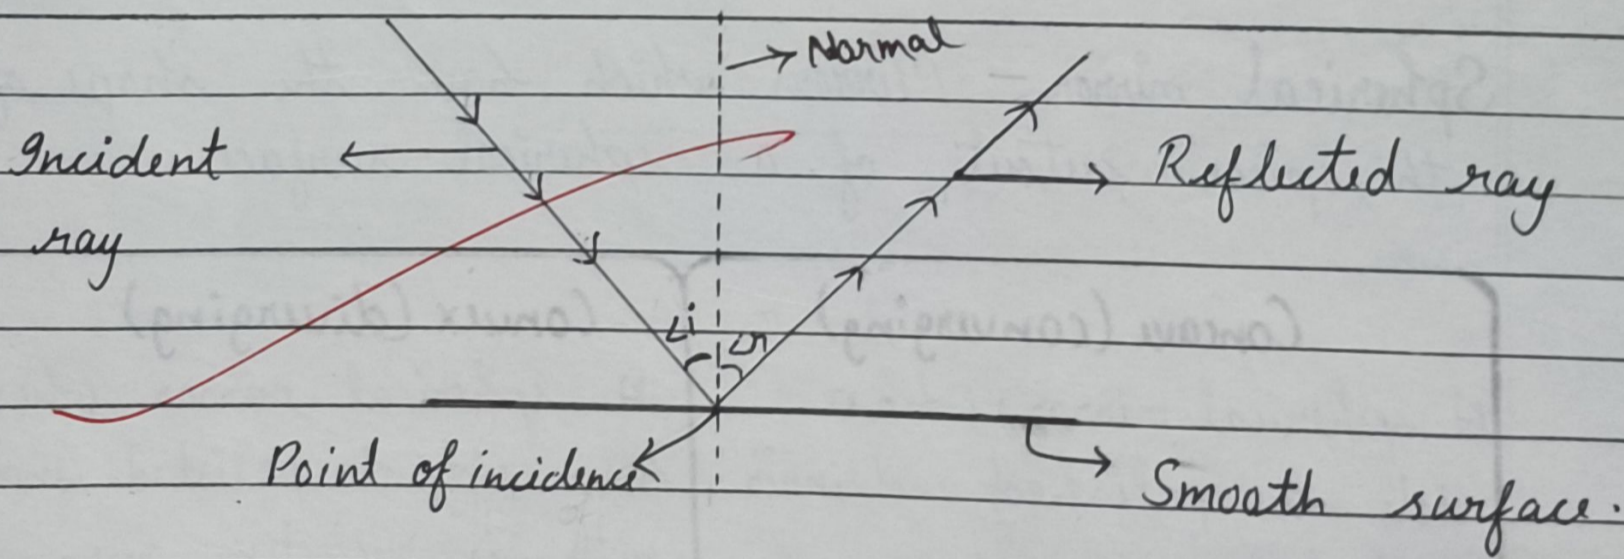 Normal
Incident
ray
Reflected ray
∠i
∠r
Point of incidence
Smooth surface.